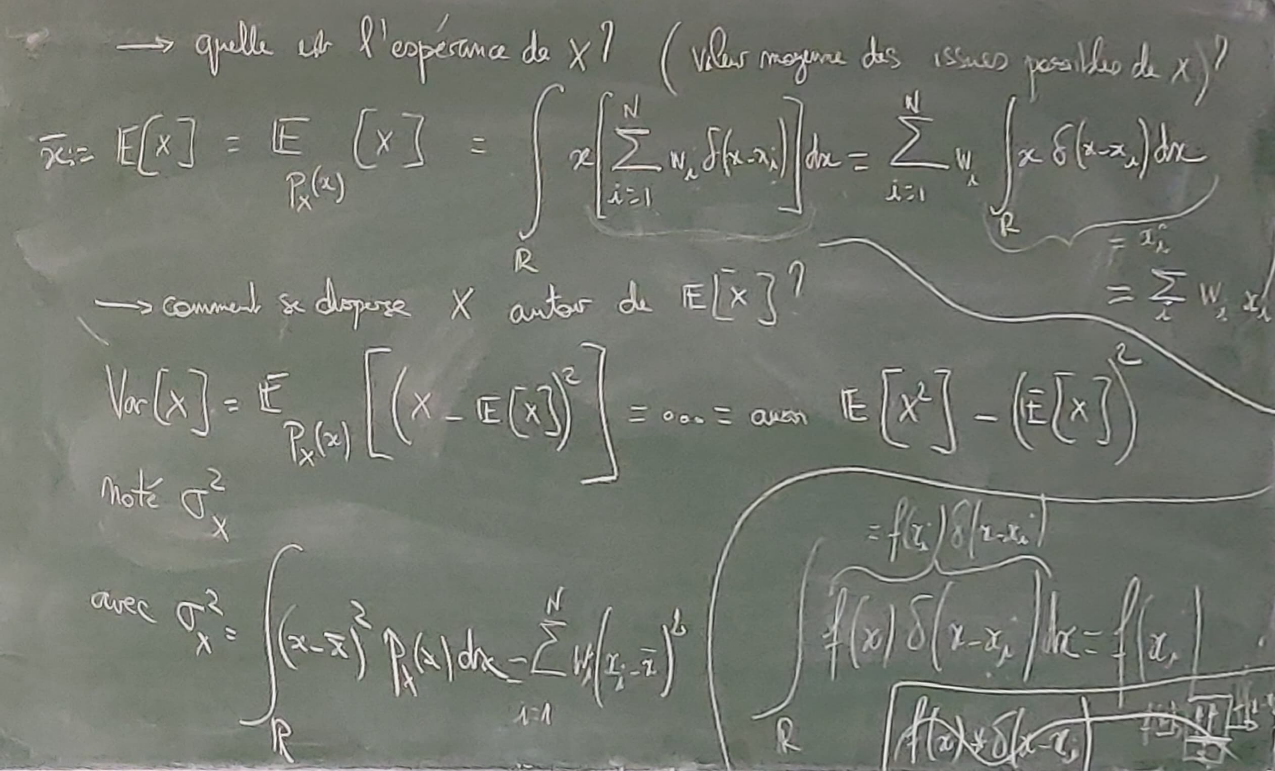 → quelle est l'espérance de X ? (valeur moyenne des issues possibles de X) ?
x̄ := E[X] = E_{P_X(x)} [X] = ∫_ℝ x [∑_{i=1}^{N} w_i δ(x-x_i)] dx = ∑_{i=1}^{N} w_i ∫_ℝ x δ(x-x_i) dx
= x_i
= ∑_i w_i x_i
→ comment se disperse X autour de E[X] ?
Var[X] = E_{P_X(x)} [(X - E[X])²] = ... = aussi E[X²] - (E[X])²
noté σ_X²
= f(x_i) δ(x-x_i)
avec σ_X² = ∫_ℝ (x-x̄)² P_X(x) dx = ∑_{i=1}^{N} w_i (x_i - x̄)²
∫_ℝ f(x) δ(x-x_i) dx = f(x_i)
f(x) * δ(x-x_i)